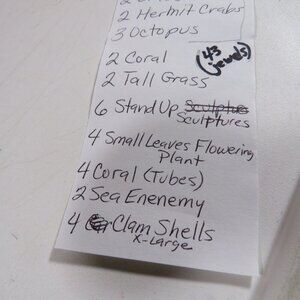 2 Hermit Crabs
3 Octopus
2 Coral
(43 jewels)
2 Tall Grass
6 Stand Up Sculptue
Sculptures
4 Small Leaves Flowering
Plant
4 Coral (Tubes)
2 Sea Enenemy
4 Clam Shells
X-Large